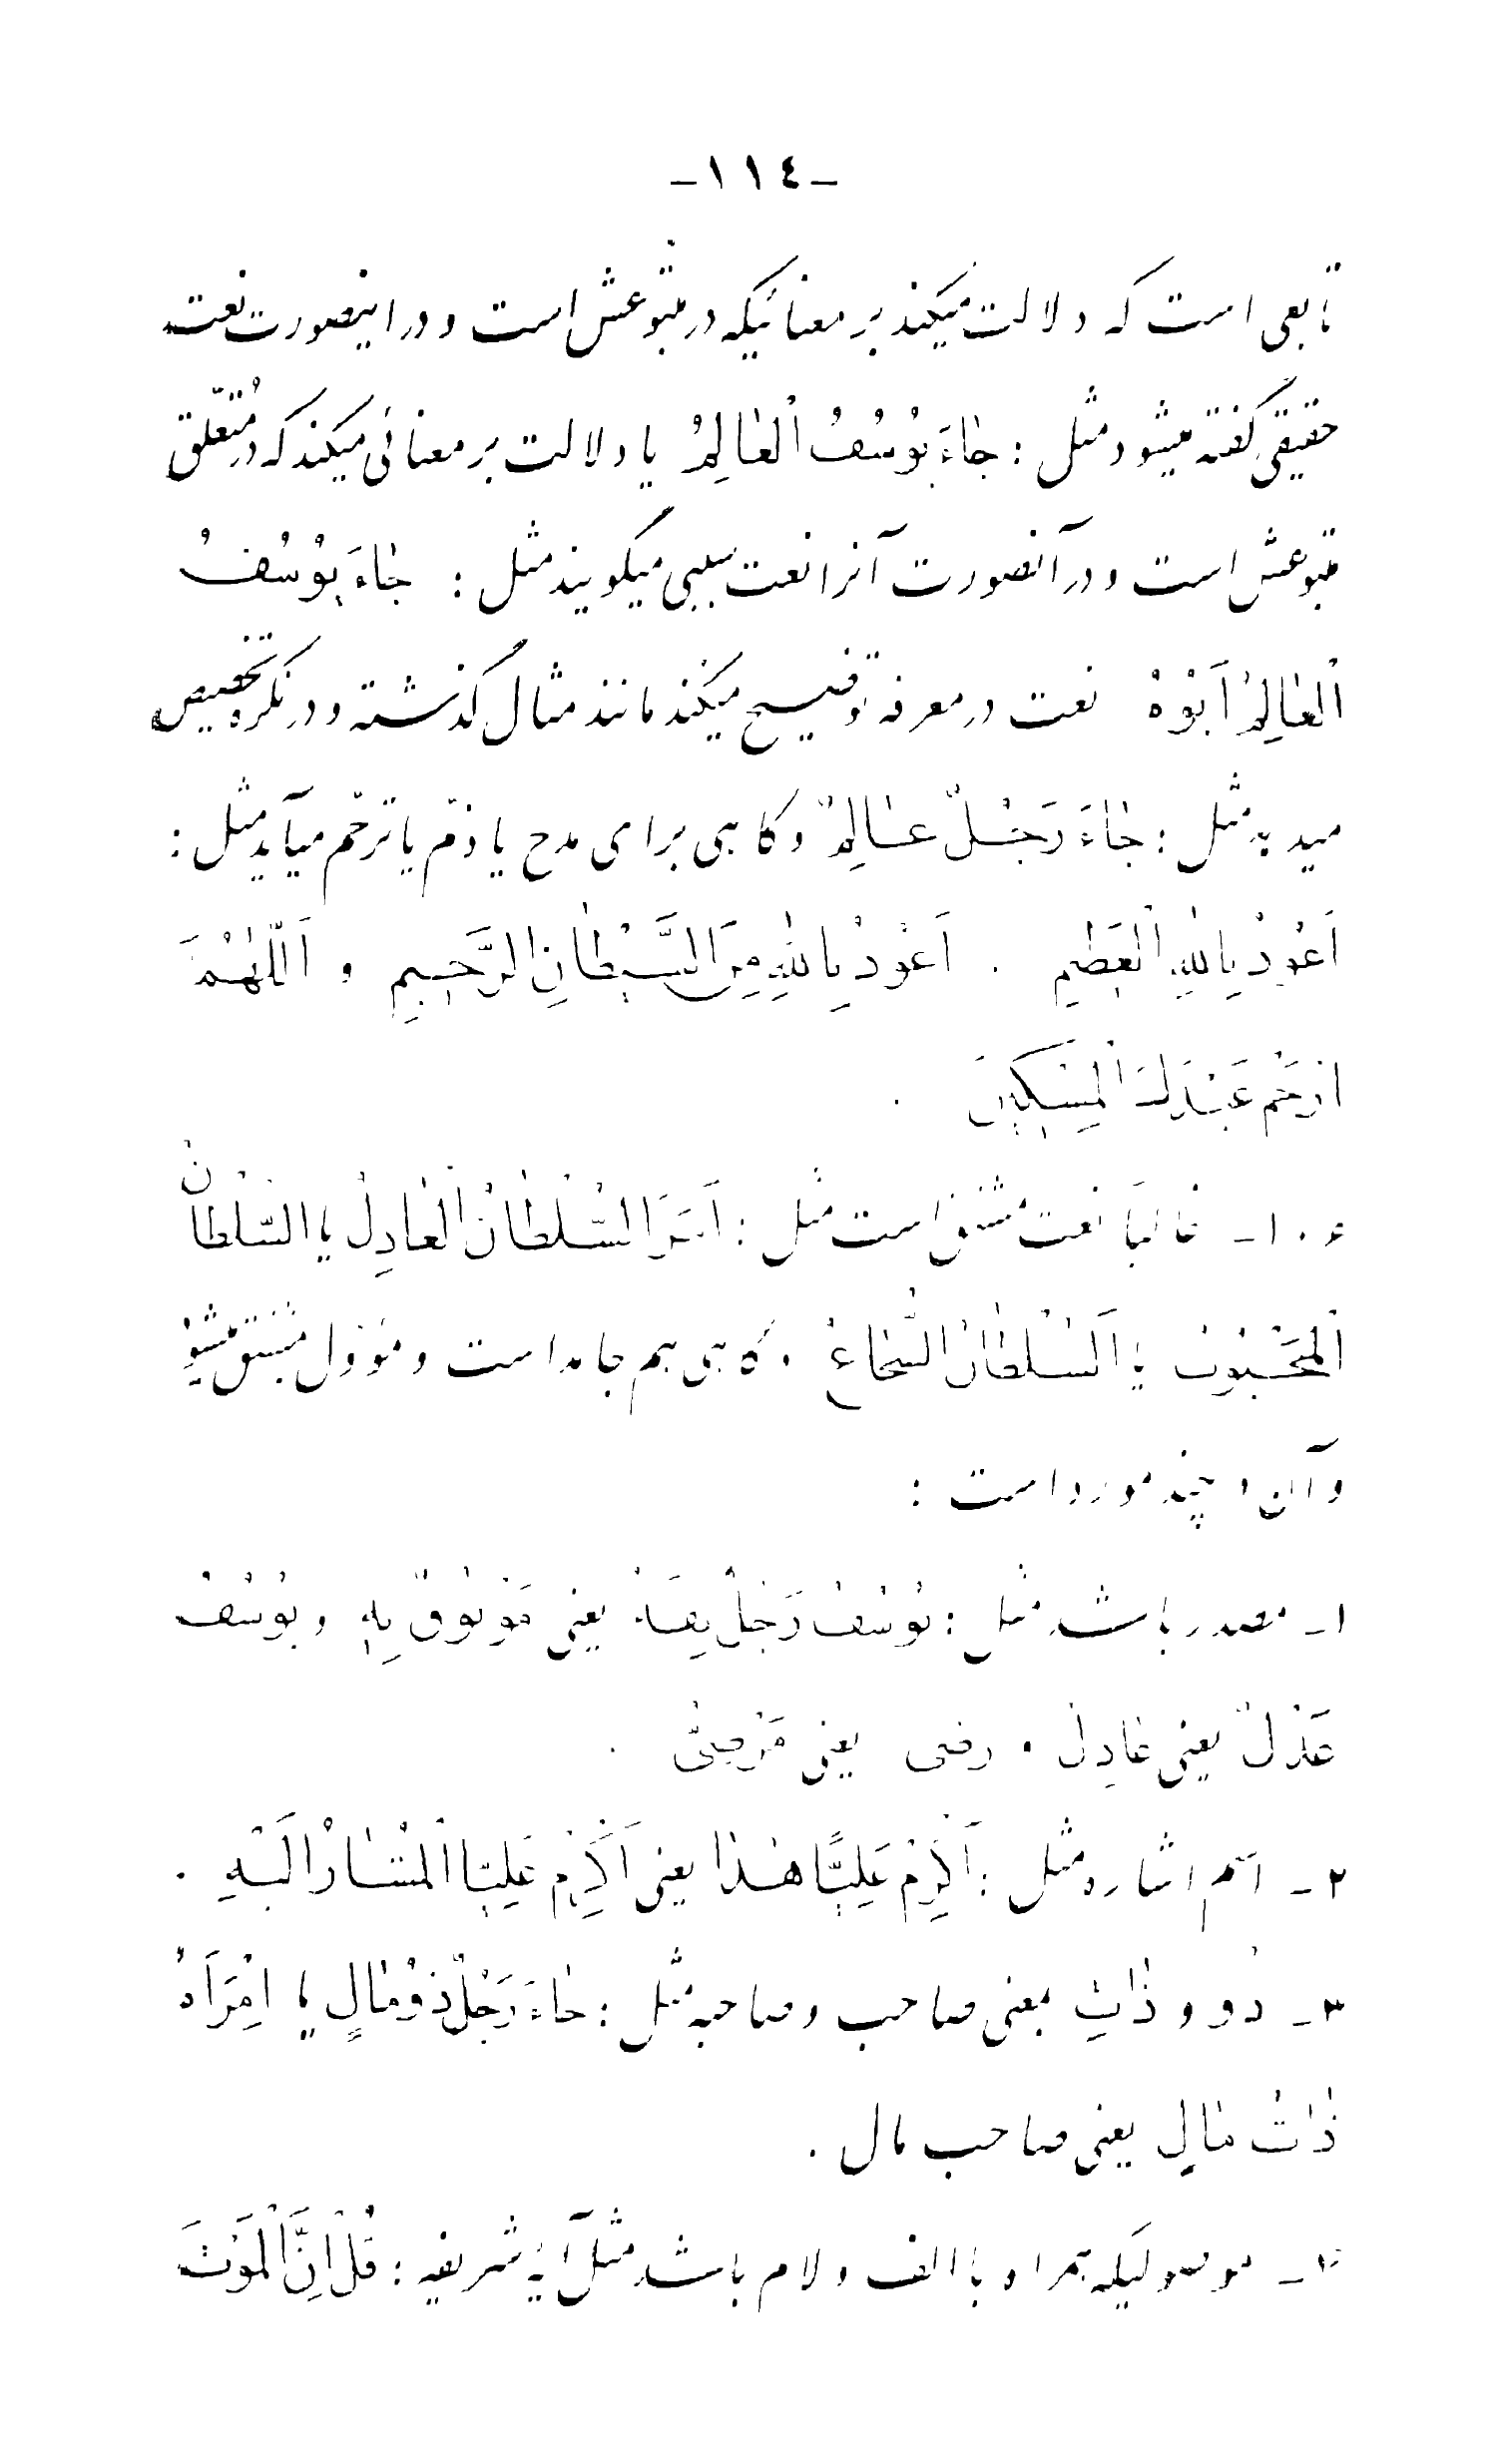 -١١٤-
تابعی است که دلالت میکند بر معنائیکه در متبوعش است و در اینصورت نعت
حقیقی گفته میشود مثل : جاءَ یُوسُفُ الْعالِمُ یا دلالت بر معنائی میکند که در مُتعلّق
متبوعش است و در آنصورت آنرا نعت سببی میگویند مثل : جاءَ یُوسُفُ
الْعالِمُ اَبُوهُ نعت در معرفه توضیح میکند مانند مثال گذشته و در نکره تخصیص
میدهد مثل : جاءَ رَجُلٌ عالِمٌ و گاهی برای مدح یا ذمّ یا ترحّم میآید مثل :
اَعُوذُ بِاللهِ الْعَظیمِ . اَعُوذُ بِاللهِ مِنَ الشَّیْطانِ الرَّجیمِ و اَللّهُمَّ
ارْحَمْ عَبْدَكَ الْمِسْکینَ .
١٠٦- غالباً نعت مشتق است مثل : اَمَرَ السُّلْطانُ الْعادِلُ یا السُّلْطانُ
الْمَحْبُوبُ یا اَلسُّلْطانُ الشُّجاعُ . گاهی هم جامد است و مؤوّل بمشتق میشود
و آن در چند مورد است :
١- مصدر باشد مثل : یُوسُفُ رَجُلٌ ثِقَةٌ یعنی مَوْثُوقٌ بِهِ و یُوسُفُ
عَدْلٌ یعنی عادِلٌ . رضی یعنی مَرْضِیٌّ .
٢- اسم اشاره مثل : اَکْرِمْ عَلِیًّا هٰذا یعنی اَکْرِمْ عَلِیًّا الْمُشارَ اِلَیْهِ .
٣- ذو و ذات بمعنی صاحب و صاحبه مثل : جاءَ رَجُلٌ ذُو مالٍ یا اِمْرَاَةٌ
ذاتُ مالٍ یعنی صاحب مال .
٤- موصولیکه همراه با الف و لام باشد مثل آیهٔ شریفه : قُلْ اِنَّ الْمَوْتَ